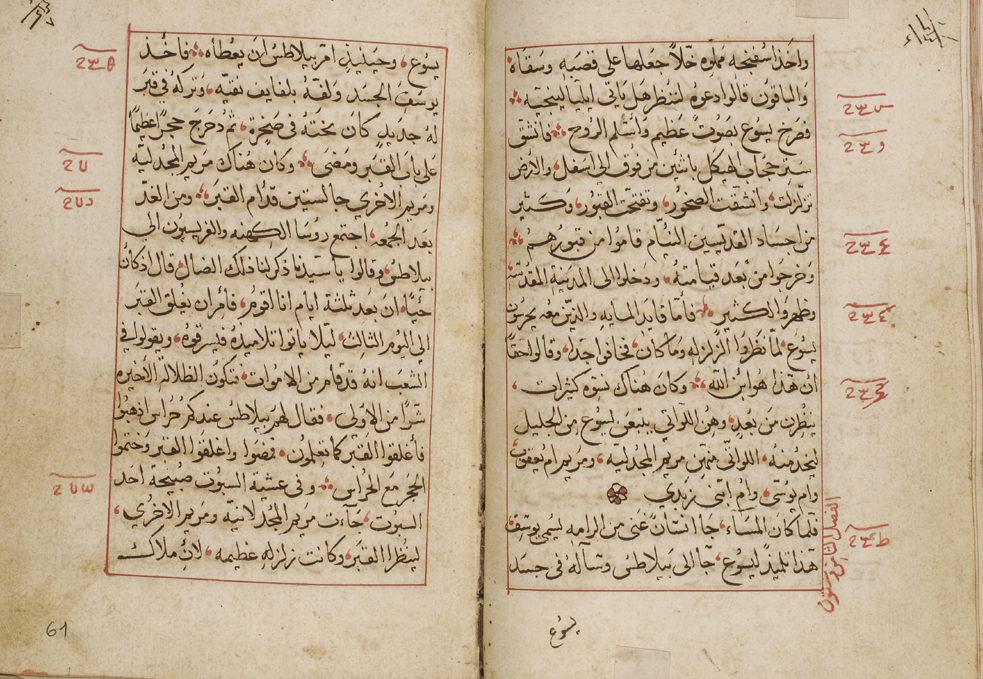 واخذ اسفنجه مملوه خلًا جعلها على قصبه وسقاه
والباقون قالوا دعوه لننظر هل ياتى ايليا لينجيه
فصرخ يسوع بصوت عظيم واسلم الروح فانشق
ستر حجاب الهيكل باثنين من فوق الى اسفل والارض
تزلزلت وانشقت الصخور وتفتحت القبور وكثير
من اجساد القديسين النيام قاموا من قبورهم
وخرجوا من بعد قيامته ودخلوا الى المدينة المقدسه
وظهروا لكثير فاما قايد المايه والذين معه يحرسون
يسوع لما نظروا الزلزله وما كان فخافوا جدًا وقالوا حقًا
ان هذا هو ابن الله وكان هناك نسوه كثيرات
ينظرن من بعد وهن اللواتي يتبعن ليسوع من الجليل
ليخدمنه اللواتى منهن مريم المجدليه ومريم ام يعقوب
وام يوسي وام ابنى زبدي
فلما كان المساء جا انسان غنى من الرامه يسمى يوسف
هذا تلميذ ليسوع جا الى بيلاطس وساله فى جسد
الفصل الثامن وستون
يسوع
يسوع وحينيذ امر بيلاطس ان يعطاه فاخذ
يوسف الجسد ولفه بلفايف نقيه وتركه في قبر
له جديد كان نحته فى صخرة ثم دحرج حجرًا عظيمًا
على باب القبر ومضى وكان هناك مريم المجدليه
ومريم الاخري جالستين قدام القبر ومن الغد
بعد الجمعه اجتمع روسا الكهنه والفريسيون الى
بيلاطس وقالوا يا سيدنا ذكرنا ذلك الضال قال اذ كان
حيًا ان بعد ثلثة ايام انا اقوم فامر ان يغلق القبر
الى اليوم الثالث ليلا ياتوا تلاميذه فيسرقوه ويقولوا فى
الشعب انه قد قام من الاموات فتكون الظلاله الاخيره
شرًا من الاولى فقال لهم بيلاطس عندكم حراس اذهبوا
فاغلقوا القبر كما تعلمون فمضوا واغلقوا القبر وختموا
الحجر مع الحراس وفى عشية السبوت صبيحة احد
السبوت جاءت مريم المجدلانيه ومريم الاخري
لينظرا القبر وكانت زلزله عظيمه لان ملاك
61